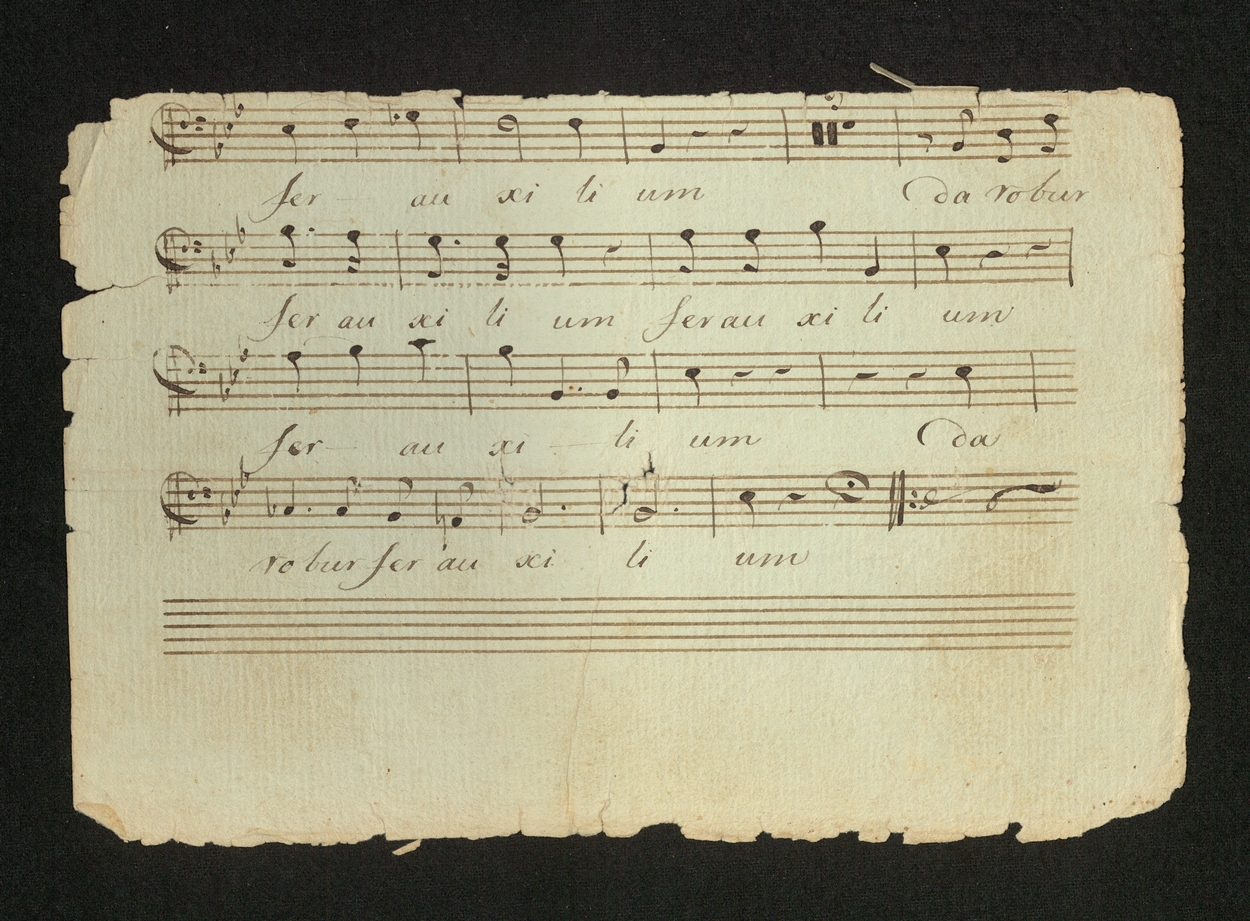 fer - au xi li um da robur
fer au xi li um fer au xi li um
fer - au xi - li um da
robur fer au xi li um